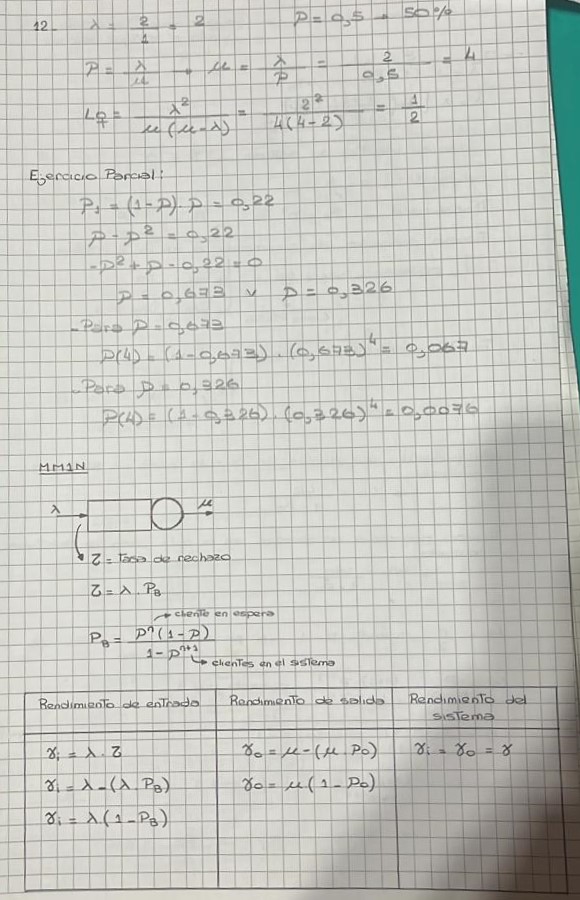 12. λ = 2/1 = 2    P = 0,5 → 50%
P = λ/μ → μ = λ/P = 2/0,5 = 4
Lq = λ²/μ(μ-λ) = 2²/4(4-2) = 1/2
Ejercicio Parcial:
P₁ = (1-P).P = 0,22
P - P² = 0,22
-P² + P - 0,22 = 0
P = 0,673 v P = 0,326
-Para P = 0,673
P(4) = (1-0,673).(0,673)⁴ = 0,067
-Para P = 0,326
P(4) = (1-0,326).(0,326)⁴ = 0,0076
MM1N
λ μ
Z = Tasa de rechazo
Z = λ . P_B
cliente en espera
P_B = Pⁿ(1-P)/1-Pⁿ⁺¹
clientes en el sistema
Rendimiento de entrada | Rendimiento de salida | Rendimiento del sistema
γi = λ . Z | γo = μ-(μ.P0) | γi = γo = γ
γi = λ-(λ.P_B) | γo = μ(1-P0)
γi = λ.(1-P_B)